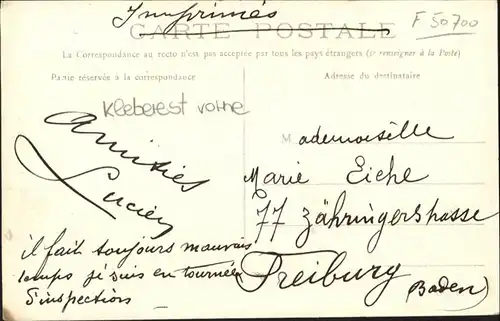 Imprimés
F 50700
CARTE POSTALE
La Correspondance au recto n'est pas acceptée par tous les pays étrangers (se renseigner à la Poste)
Partie réservée à la correspondance
Adresse du destinataire
Kleberest vorne
Amitiés
Lucien
il fait toujours mauvais
temps je suis en tournée
d'inspection
Mademoiselle
Marie Eiche
77 Zähringerstrasse
Freiburg
(Baden)